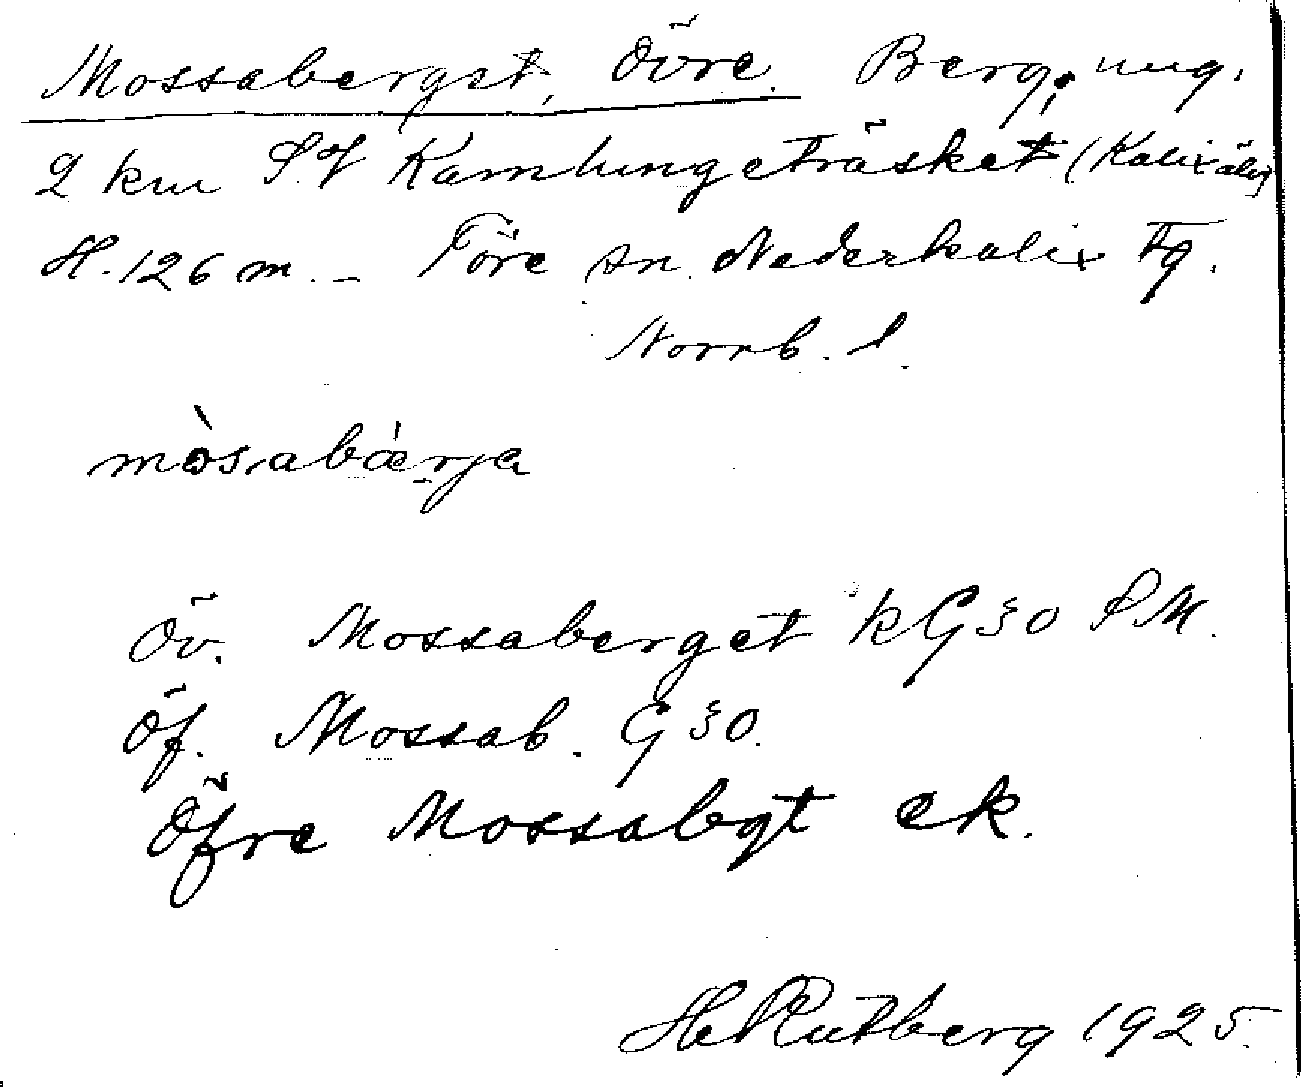 Mossabergst, Övre. Berg, ung.
2 km S of Kamlungeträsket (Kalixälv)
H. 126 m. - Töre sn. Nederkalix tg.
Norrb. l.
mòsabærja
Öv. Mossaberget kG30 SM.
Öf. Mossab. G30.
Öfre Mossabgt ek.
He Rutberg 1925.